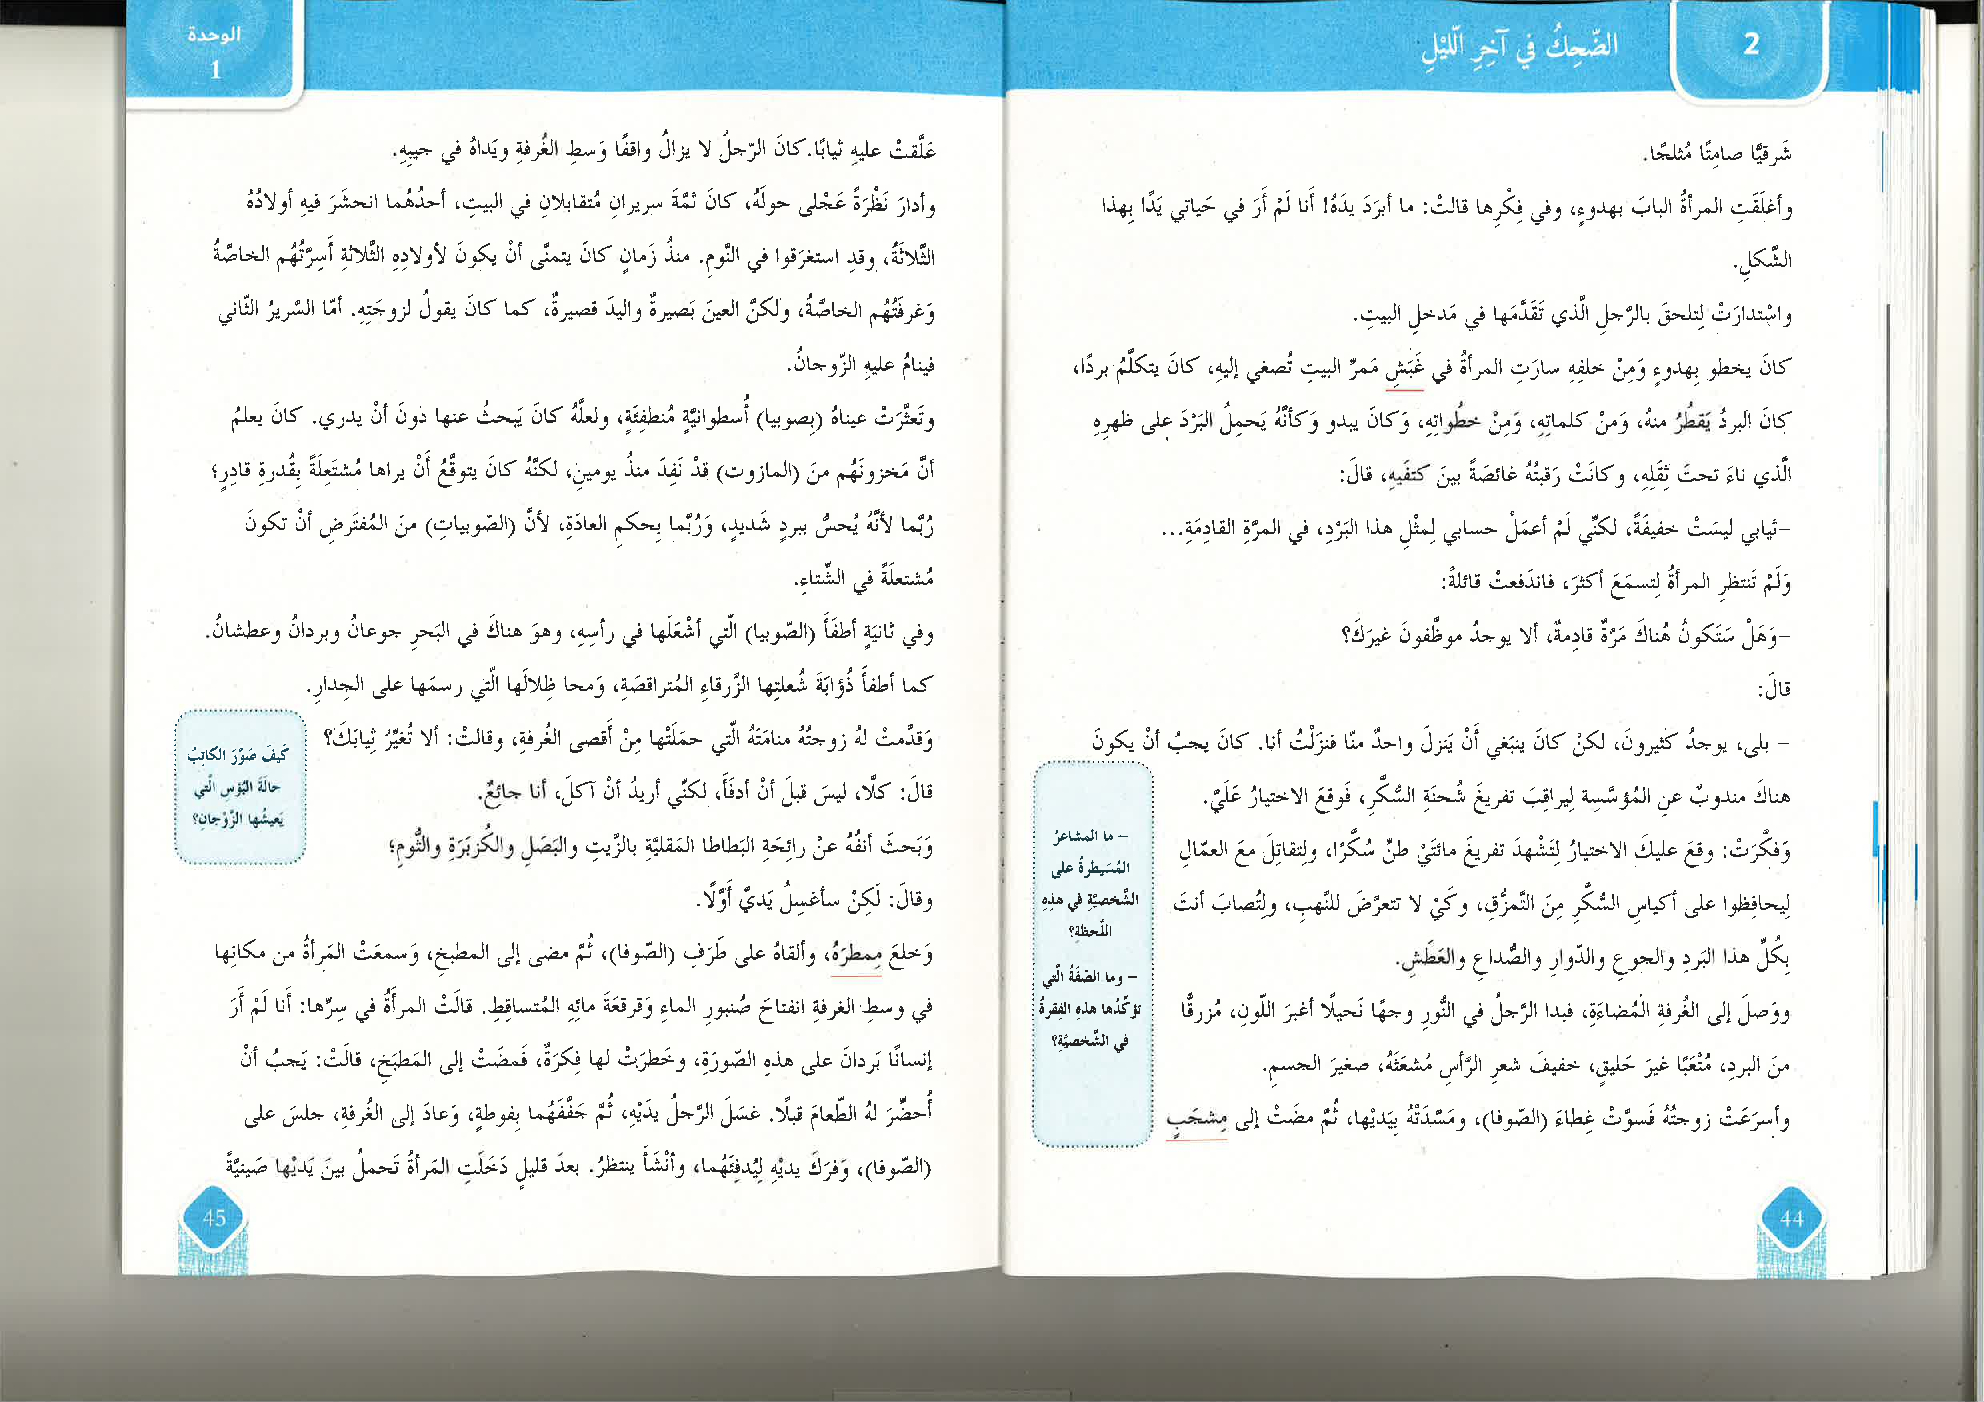 2
الضّحِكُ في آخِرِ الّليْلِ
شَرقيًّا صامِتًا مُثلجًا.
وأغلَقَتِ المرأةُ البابَ بهدوءٍ، وفي فِكْرِها قالتْ: ما أبرَدَ يدَهُ! أنا لَمْ أَرَ في حَياتي يَدًا بِهذا
الشَّكلِ.
واسْتدارَتْ لِتلحقَ بالرَّجلِ الَّذي تَقَدَّمَها في مَدخلِ البيتِ.
كانَ يخطو بِهدوءٍ وَمِنْ خلفِهِ سارَتِ المرأةُ في غَبَشِ مَمرِّ البيتِ تُصغي إليهِ، كانَ يتكلَّمُ بردًا،
كانَ البردُ يَقطُرُ منهُ، وَمَنْ كلماتِهِ، وَمِنْ خطُواتِهِ، وَكانَ يبدو وَكأنَّهُ يَحمِلُ البَرْدَ على ظهرِهِ
الَّذي ناءَ تحتَ ثِقَلِهِ، وكانَتْ رَقبتُهُ غائصَةً بينَ كتفَيهِ، قالَ:
–ثيابي ليسَتْ خفيفَةً، لكنّي لَمْ أعمَلْ حسابي لِمثْلِ هذا البَرْدِ، في المرَّةِ القادِمَةِ...
وَلَمْ تَنتظرِ المرأةُ لِتسمَعَ أكثرَ، فاندَفعتْ قائلةً:
–وَهَلْ سَتَكونُ هُناكَ مَرَّةٌ قادِمةٌ، ألا يوجدُ موظَّفونَ غيرَكَ؟
قالَ:
– بلى، يوجدُ كثيرونَ، لكنْ كانَ ينبَغي أَنْ يَنزلَ واحدٌ منّا فنزَلْتُ أنا. كانَ يجبُ أنْ يكونَ
هناكَ مندوبٌ عنِ المؤسَّسِة لِيراقِبَ تفريغَ شُحنَةِ السُّكَّرِ، فَوقعَ الاختيارُ عَلَيَّ.
وَفكَّرَتْ: وقعَ عليكَ الاختيارُ لِتَشْهدَ تفريغَ مائتَيْ طنٍّ سُكَّرًا، ولِتقاتِلَ معَ العمّالِ
لِيحافِظوا على أكياسِ السُّكَّرِ مِنَ التَّمزُّقِ، وكَيْ لا تتعرَّضَ للنَّهبِ، ولِتُصابَ أنتَ
بِكُلِّ هذا البَردِ والجوعِ والدّوارِ والصُّداعِ والعَطَشِ.
ووَصلَ إلى الغُرفةِ الْمُضاءَةِ، فبدا الرَّجلُ في النُّورِ وجهًا نَحيلًا أغبَرَ اللّونِ، مُزرقًّا
منَ البردِ، مُتْعَبًا غيرَ حَليقٍ، خفيفَ شعرِ الرَّأسِ مُشعَثَهُ، صغيرَ الجسمِ.
وأسرَعَتْ زوجتُهُ فَسوَّتْ غِطاءَ (الصّوفا)، ومَسَّدَتْهُ بِيَديْها، ثُمَّ مضَتْ إلى مِشجَبٍ
– ما المشاعرُ
المُسَيطرةُ على
الشَّخصيَّةِ في هذِهِ
اللَّحظةِ؟
– وما الصِّفَةُ الَّتي
تؤكّدُها هذهِ الفِقرةُ
في الشَّخصيَّةِ؟
44
الوحدة
1
عَلَّقتْ عليهِ ثيابًا.كانَ الرّجلُ لا يزالُ واقفًا وَسطِ الغُرفةِ ويَداهُ في جيبِهِ.
وأدارَ نَظْرَةً عَجْلى حولَهُ، كانَ ثَمَّةَ سريرانِ مُتقابلانِ في البيتِ، أحدُهُما انحشَرَ فيهِ أولادُهُ
الثَّلاثَةُ، وقدِ استغرَقوا في النَّومِ. منذُ زَمانٍ كانَ يتمنَّى أنْ يكونَ لأولادِهِ الثَّلاثةِ أَسِرَّتُهُم الخاصَّةُ
وَغرفَتُهُم الخاصَّةُ، ولكنَّ العينَ بَصيرةٌ واليدَ قصيرةٌ، كما كانَ يقولُ لزوجَتِهِ. أمّا السَّريرُ الثّاني
فينامُ عليهِ الزّوجانُ.
وتَعثَّرَتْ عيناهُ (بِصوبيا) أُسطوانيَّةٍ مُنطفِئَةٍ، ولعلَّهُ كانَ يَبحثُ عنها دونَ أنْ يدري. كانَ يعلمُ
أنَّ مَخزونَهُم منَ (المازوت) قدْ نَفِدَ منذُ يومينِ، لكنَّهُ كانَ يتوقَّعُ أَنْ يراها مُشتَعِلَةً بِقُدرةِ قادِرٍ؛
رُبَّما لأنَّهُ يُحسُّ ببردٍ شَديدٍ، وَرُبَّما بِحكمِ العادَةِ، لأنَّ (الصّوبياتِ) منَ المُفتَرضِ أنْ تكونَ
مُشتعلَةً في الشِّتاءِ.
وفي ثانيَةٍ أطفَأَ (الصّوبيا) الّتي أشْعَلَها في رأسِهِ، وهوَ هناكَ في البَحرِ جوعانُ وبردانُ وعطشانُ.
كما أطفأَ ذُؤابَةَ شُعلتِها الزَّرقاءِ المُتراقصَةِ، وَمحا ظِلالَها الّتي رسمَها على الجِدارِ.
وَقدَّمتْ لهُ زوجتُهُ منامَتَهُ الّتي حمَلَتْها مِنْ أَقصى الغُرفةِ، وقالتْ: ألا تُغيِّرُ ثِيابَكَ؟
قالَ: كلَّا، ليسَ قبلَ أنْ أدفَأَ، لكنّي أريدُ أنْ آكلَ، أنا جائعٌ.
وَبَحثَ أنفُهُ عنْ رائِحَةِ البَطاطا المَقليَّةِ بالزَّيتِ والبَصَلِ والكُزبَرَةِ والثُّومِ؛
وقالَ: لَكِنْ سأغسِلُ يَديَّ أَوَّلًا.
وَخلعَ مِمطرَهُ، وألقاهُ على طَرَفِ (الصّوفا)، ثُمَّ مضى إلى المطبخِ، وَسمعَتْ المَرأةُ من مكانِها
في وسطِ الغرفةِ انفتاحَ صُنبورِ الماءِ وَقرقعَةَ مائِهِ المُتساقِطِ. قالَتْ المرأَةُ في سِرِّها: أَنا لَمْ أَرَ
إنسانًا بَردانَ على هذهِ الصّورَةِ، وخطَرَتْ لها فِكرَةٌ، فَمضَتْ إلى المَطبَخِ، قالَتْ: يَجبُ أنْ
أُحضِّرَ لهُ الطّعامَ قبلًا. غسَلَ الرَّجلُ يدَيْهِ، ثُمَّ جَفَّفَهُما بِفوطةٍ، وَعادَ إلى الغُرفةِ، جلسَ على
(الصّوفا)، وَفركَ يديْهِ لِيُدفِئَهُما، وأنْشَأَ ينتظرُ. بعدَ قليلٍ دَخَلَتِ المَرأةُ تَحملُ بينَ يَديْها صَينيَّةً
كَيفَ صَوَّرَ الكاتِبُ
حالَةَ البُؤسِ الَّتي
يَعيشُها الزَّوْجانِ؟
45